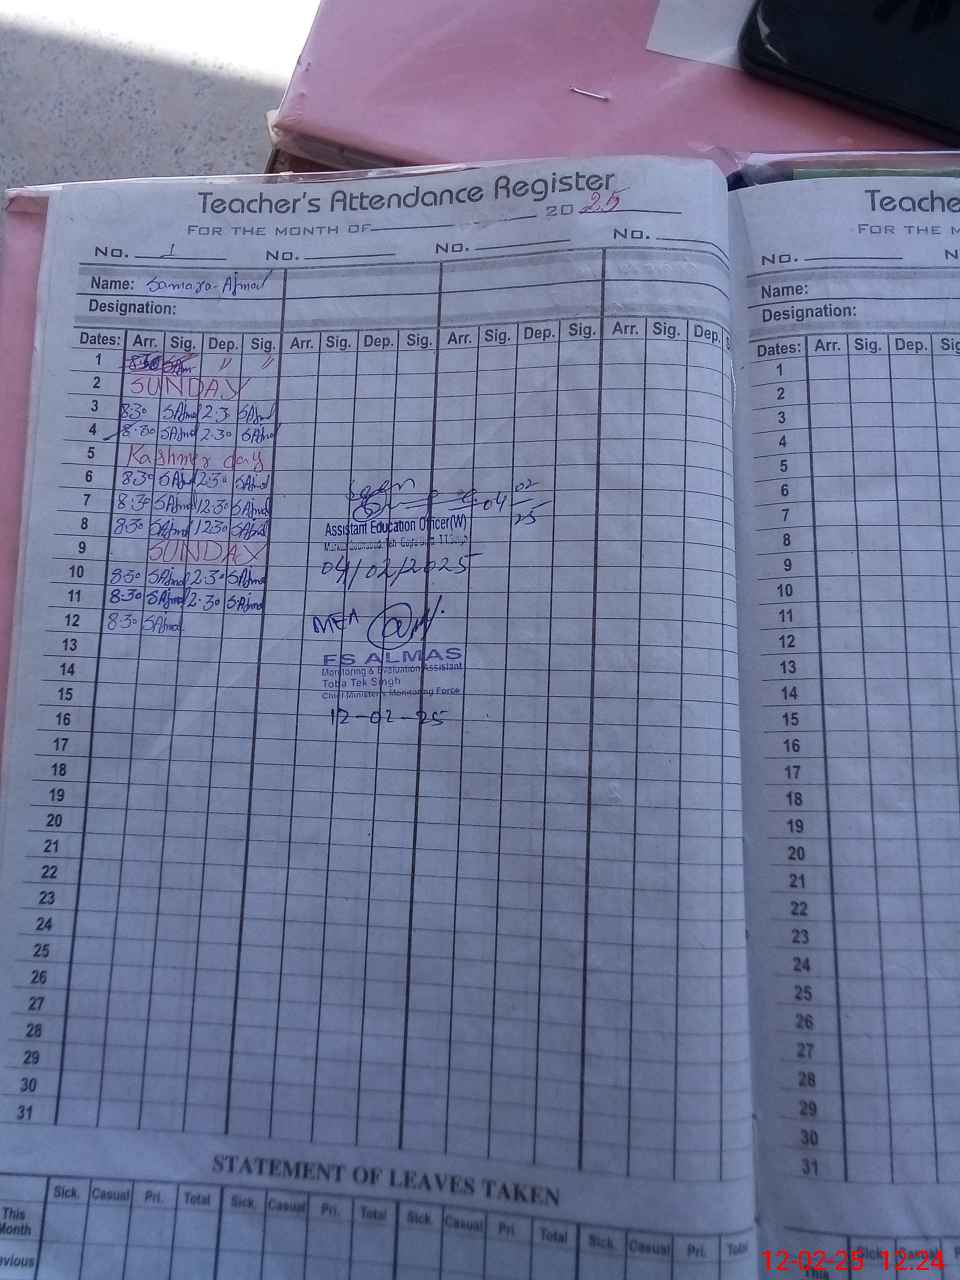 Teacher's Attendance Register
FOR THE MONTH OF 20 25
No. 1 No. No. No.
Name: Samara Ajmal
Designation:
Dates: Arr. Sig. Dep. Sig. Arr. Sig. Dep. Sig. Arr. Sig. Dep. Sig. Arr. Sig. Dep.
1 8:30 SAjm " "
2 SUNDAY
3 8:30 SAjmal 2:3 SAjmal
4 8:30 SAjmal 2:30 SAjmal
5 Kashmir day
6 8:30 SAjmal 2:30 SAjmal
7 8:30 SAjmal 12:30 SAjmal
8 8:30 SAjmal 12:30 SAjmal
9 SUNDAY
10 8:30 SAjmal 2:30 SAjmal
11 8:30 SAjmal 2:30 SAjmal
12 8:30 SAjmal
13
14
15
16
17
18
19
20
21
22
23
24
25
26
27
28
29
30
31
Seen
04 02 25
Assistant Education Officer(W)
04/02/2025
MEA
ES ALMAS
Monitoring & Evaluation Assistant
Toba Tek Singh
Chief Minister's Monitoring Force
12-02-25
STATEMENT OF LEAVES TAKEN
Sick. Casual Pri. Total Sick. Casual Pri. Total Sick. Casual Pri. Total Sick. Casual Pri. Total
This
Month
evious
Teache
FOR THE M
No. N
Name:
Designation:
Dates: Arr. Sig. Dep. Sig
1
2
3
4
5
6
7
8
9
10
11
12
13
14
15
16
17
18
19
20
21
22
23
24
25
26
27
28
29
30
31
Sick Casual P
This
12-02-25 12.24